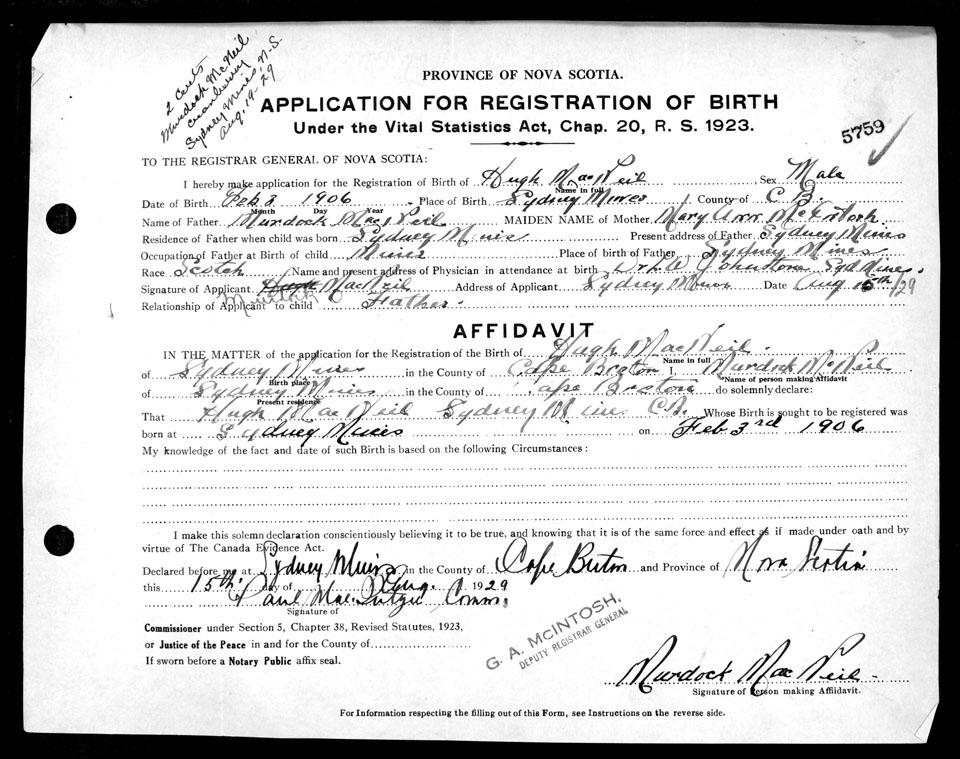 2 Certs
Murdock McNeil
Cranberry
Sydney Mines, N.S.
Aug. 19-29
PROVINCE OF NOVA SCOTIA.
APPLICATION FOR REGISTRATION OF BIRTH
Under the Vital Statistics Act, Chap. 20, R. S. 1923.
5759
TO THE REGISTRAR GENERAL OF NOVA SCOTIA:
I hereby make application for the Registration of Birth of Hugh MacNeil Sex Male
Name in full
Date of Birth Feb 3 1906 Place of Birth Sydney Mines County of C B.
Month Day Year
Name of Father Murdock MacNeil MAIDEN NAME of Mother Mary Ann McIntosh
Residence of Father when child was born Sydney Mines Present address of Father Sydney Mines
Occupation of Father at Birth of child Miner Place of birth of Father Sydney Mines
Race Scotch Name and present address of Physician in attendance at birth Johnstone Syd Mines
Signature of Applicant Hugh MacNeil Address of Applicant Sydney Mines Date Aug 15th/29
Murdock
Relationship of Applicant to child Father.
AFFIDAVIT
IN THE MATTER of the application for the Registration of the Birth of Hugh MacNeil.
Name in full
of Sydney Mines in the County of Cape Breton I, Murdock McNeil
Birth place Name of person making Affidavit
of Sydney Mines in the County of Cape Breton do solemnly declare:
Present residence
That Hugh MacNeil Sydney Mines C.B. Whose Birth is sought to be registered was
born at Sydney Mines on Feb 3rd 1906
My knowledge of the fact and date of such Birth is based on the following Circumstances:
I make this solemn declaration conscientiously believing it to be true, and knowing that it is of the same force and effect as if made under oath and by
virtue of The Canada Evidence Act.
Declared before me at Sydney Mines in the County of Cape Breton and Province of Nova Scotia
this 15th day of Aug. 1929
Paul Comm.
Signature of
Commissioner under Section 5, Chapter 38, Revised Statutes, 1923,
or Justice of the Peace in and for the County of
If sworn before a Notary Public affix seal.
G. A. McINTOSH,
DEPUTY REGISTRAR GENERAL
Murdock MacNeil
Signature of Person making Affidavit.
For Information respecting the filling out of this Form, see Instructions on the reverse side.